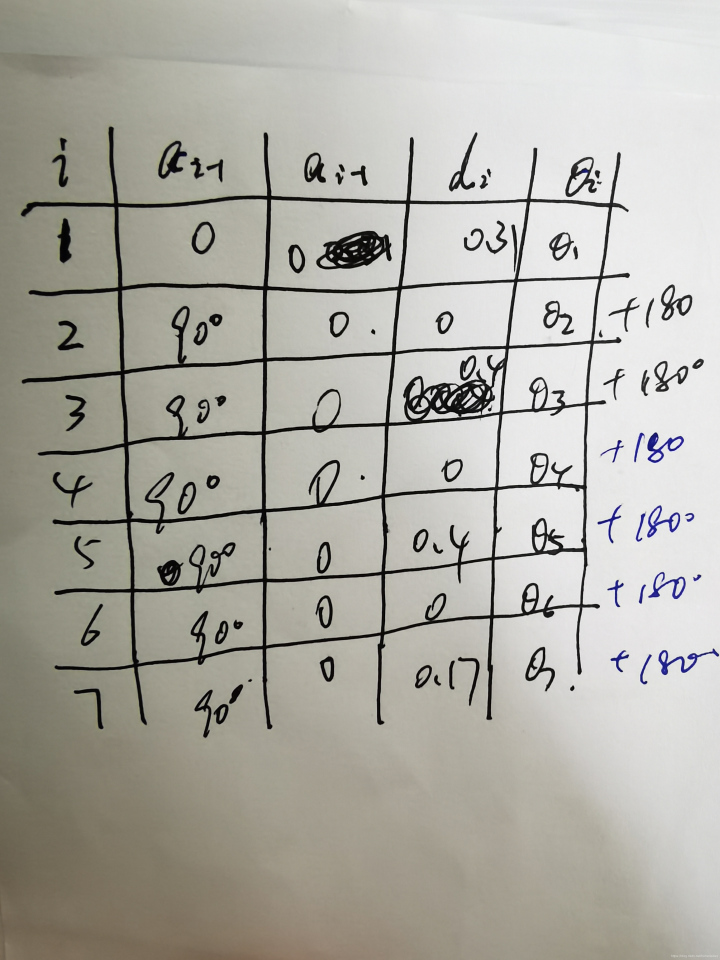 i α i-1 a i-1 d i θ i
1 0 0 0.31 θ1
2 90° 0. 0 θ2 +180
3 90° 0 0.4 θ3 +180°
4 90° 0. 0 θ4 +180
5 90° 0 0.4 θ5 +180°
6 90° 0 0 θ6 +180°
7 90° 0 0.17 θ7. +180°